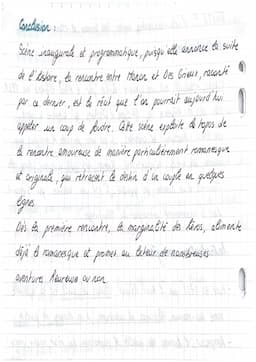 Conclusion :
Scène inaugurale et programmatique, puisqu'elle annonce la suite
de l'histoire, la rencontre entre Manon et Des Grieux, raconté
par ce dernier, est le récit que l'on pourrait aujourd'hui
appeler un coup de foudre. Cette scène exploite le topos de
la rencontre amoureuse de manière particulièrement romanesque
et originale, qui retracent le destin d'un couple en quelques
lignes.
Dès la première rencontre, la marginalité des héros, alimente
déjà le romanesque et promet au lecteur de nombreuses
aventures heureuses ou non.